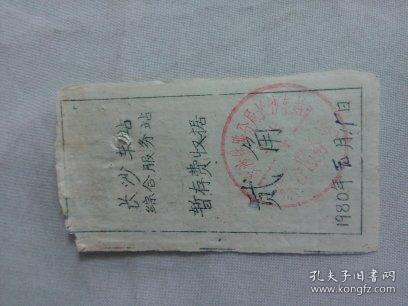 长沙车站
综合服务站
暂存费收据
贰角
1980年元月1日
孔夫子旧书网
www.kongfz.com